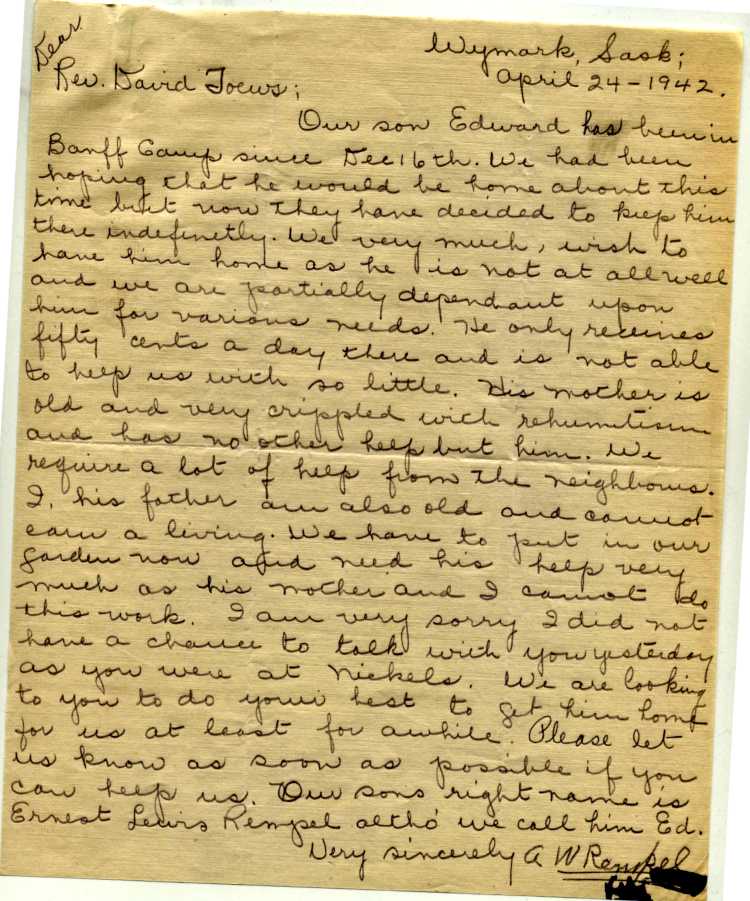 Wymark, Sask;
April 24-1942.
Dear
Rev. David Toews;
Our son Edward has been in
Banff Camp since Dec 16th. We had been
hoping that he would be home about this
time but now they have decided to keep him
there indefinetly. We very much, wish to
have him home as he is not at all well
and we are partially dependant upon
him for various needs. He only receives
fifty cents a day there and is not able
to help us with so little. His mother is
old and very crippled with rehumitism
and has no other help but him. We
require a lot of help from the neighbours.
I, his father am also old and cannot
earn a living. We have to put in our
garden now and need his help very
much as his mother and I cannot do
this work. I am very sorry I did not
have a chance to talk with you yesterday
as you were at Nickels. We are looking
to you to do your best to get him home
for us at least for awhile. Please let
us know as soon as possible if you
can help us. Our sons right name is
Ernest Lewis Rempel altho' we call him Ed.
Very sincerely A W Rempel